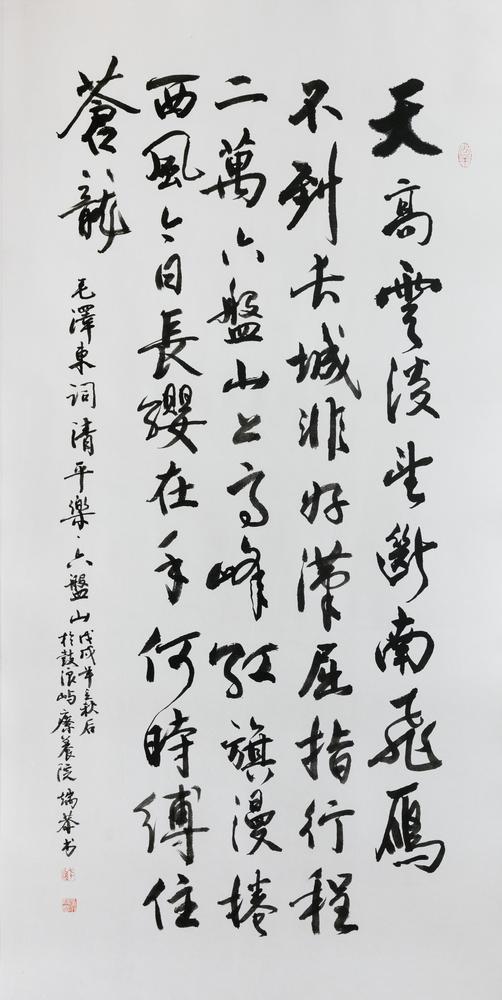 天高雲淡望斷南飛雁
不到长城非好漢屈指行程
二萬六盤山上高峰红旗漫捲
西風今日長纓在手何時缚住
蒼龍
毛澤東词清平樂·六盤山戊戌年立秋后
於鼓浪屿療養院端恭书